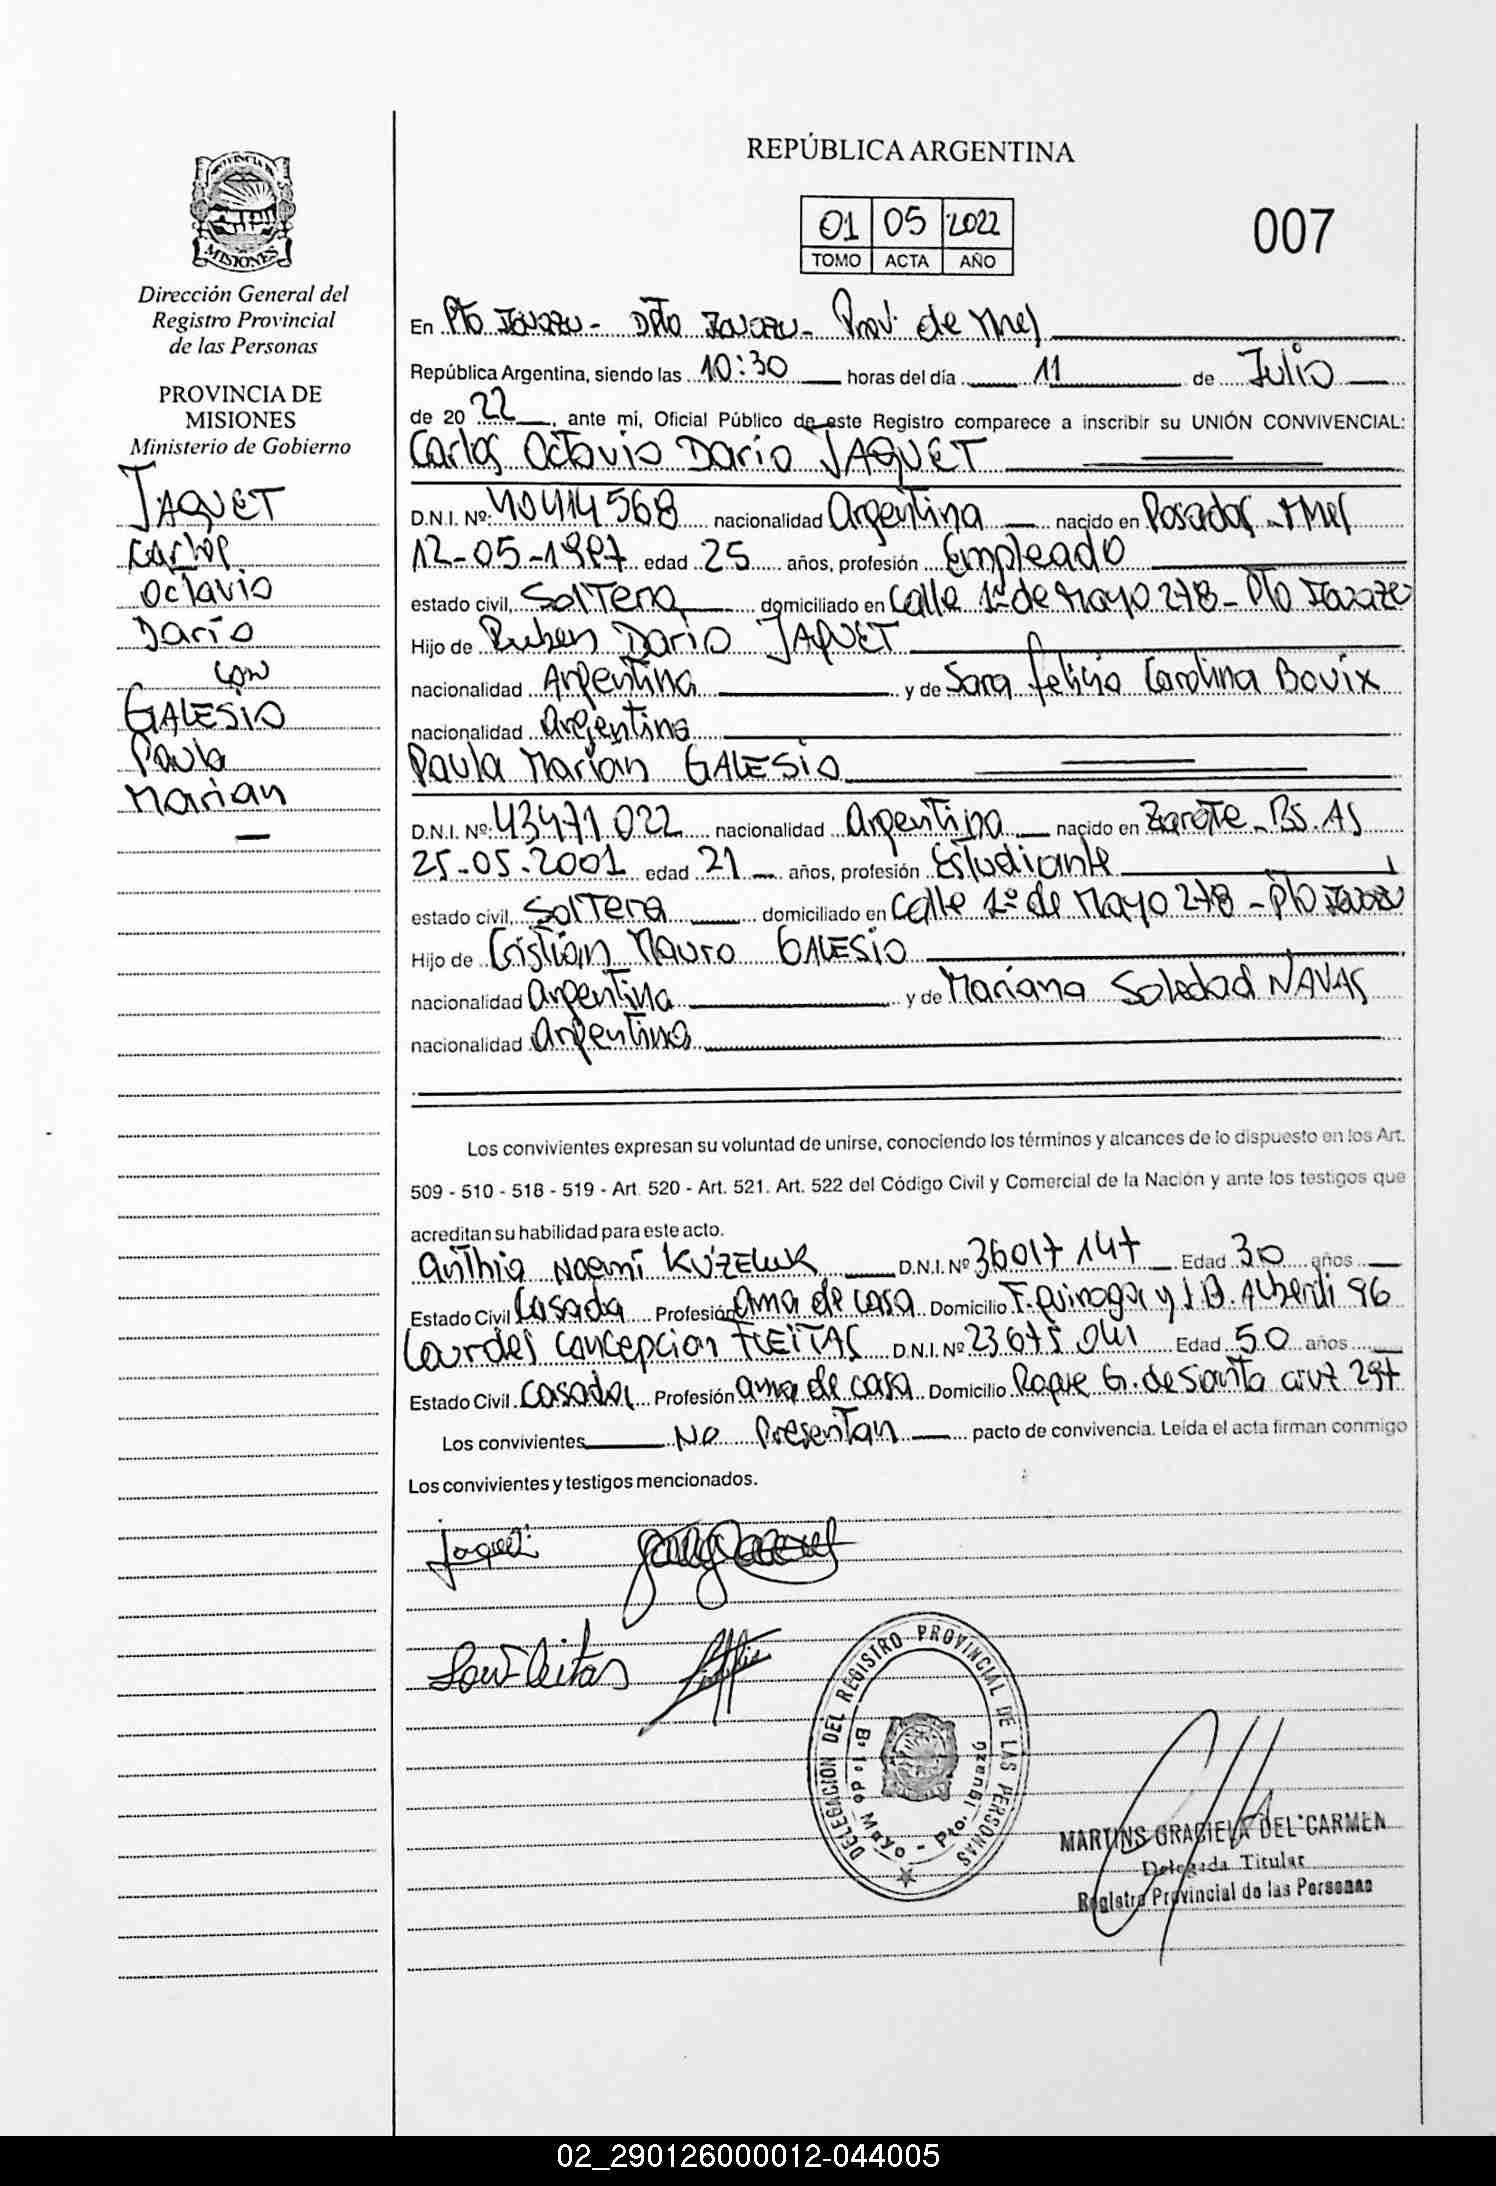 REPÚBLICA ARGENTINA
01 05 2022
TOMO ACTA AÑO
007
PROVINCIA DE
MISIONES
Dirección General del
Registro Provincial
de las Personas
PROVINCIA DE
MISIONES
Ministerio de Gobierno
JAQUET
Carlos
Octavio
Darío
con
GALESIO
Paula
Marian
En Pto Iguazu - Dpto Iguazu - Prov. de Mnes
República Argentina, siendo las 10:30 horas del día 11 de Julio
de 2022, ante mi, Oficial Público de este Registro comparece a inscribir su UNIÓN CONVIVENCIAL:
Carlos Octavio Darío JAQUET
D.N.I. Nº: 40414568 nacionalidad Argentina nacido en Posadas - Mnes
12-05-1997 edad 25 años, profesión Empleado
estado civil, Soltero domiciliado en Calle 1º de Mayo 278 - Pto Iguazu
Hijo de Ruben Dario JAQUET
nacionalidad Argentina y de Sara Felicia Carolina Bovix
nacionalidad Argentina
Paula Marian GALESIO
D.N.I. Nº: 43471022 nacionalidad Argentina nacido en Zarate - Bs. As
25-05-2001 edad 21 años, profesión Estudiante
estado civil, Soltera domiciliado en Calle 1º de Mayo 278 - Pto Iguazu
Hijo de Cristian Mauro GALESIO
nacionalidad Argentina y de Mariana Soledad NAVAS
nacionalidad Argentina
Los convivientes expresan su voluntad de unirse, conociendo los términos y alcances de lo dispuesto en los Art.
509 - 510 - 518 - 519 - Art. 520 - Art. 521. Art. 522 del Código Civil y Comercial de la Nación y ante los testigos que
acreditan su habilidad para este acto.
Noemí D.N.I. Nº 36017147 Edad 30 años
Estado Civil Casada Profesión Ama de casa Domicilio F. Quiroga y J.B. Alberdi 96
Lourdes Concepcion FLEITAS D.N.I. Nº 23675041 Edad 50 años
Estado Civil Casada Profesión Ama de casa Domicilio Roque G. de Santa Cruz 297
Los convivientes No Presentan pacto de convivencia. Leída el acta firman conmigo
Los convivientes y testigos mencionados.
Jaquet
DELEGACION DEL REGISTRO PROVINCIAL DE LAS PERSONAS
Bº 1º de Mayo - Pto. Iguazú
MARTINS GRACIELA DEL CARMEN
Delegada Titular
Registro Provincial de las Personas
02_290126000012-044005